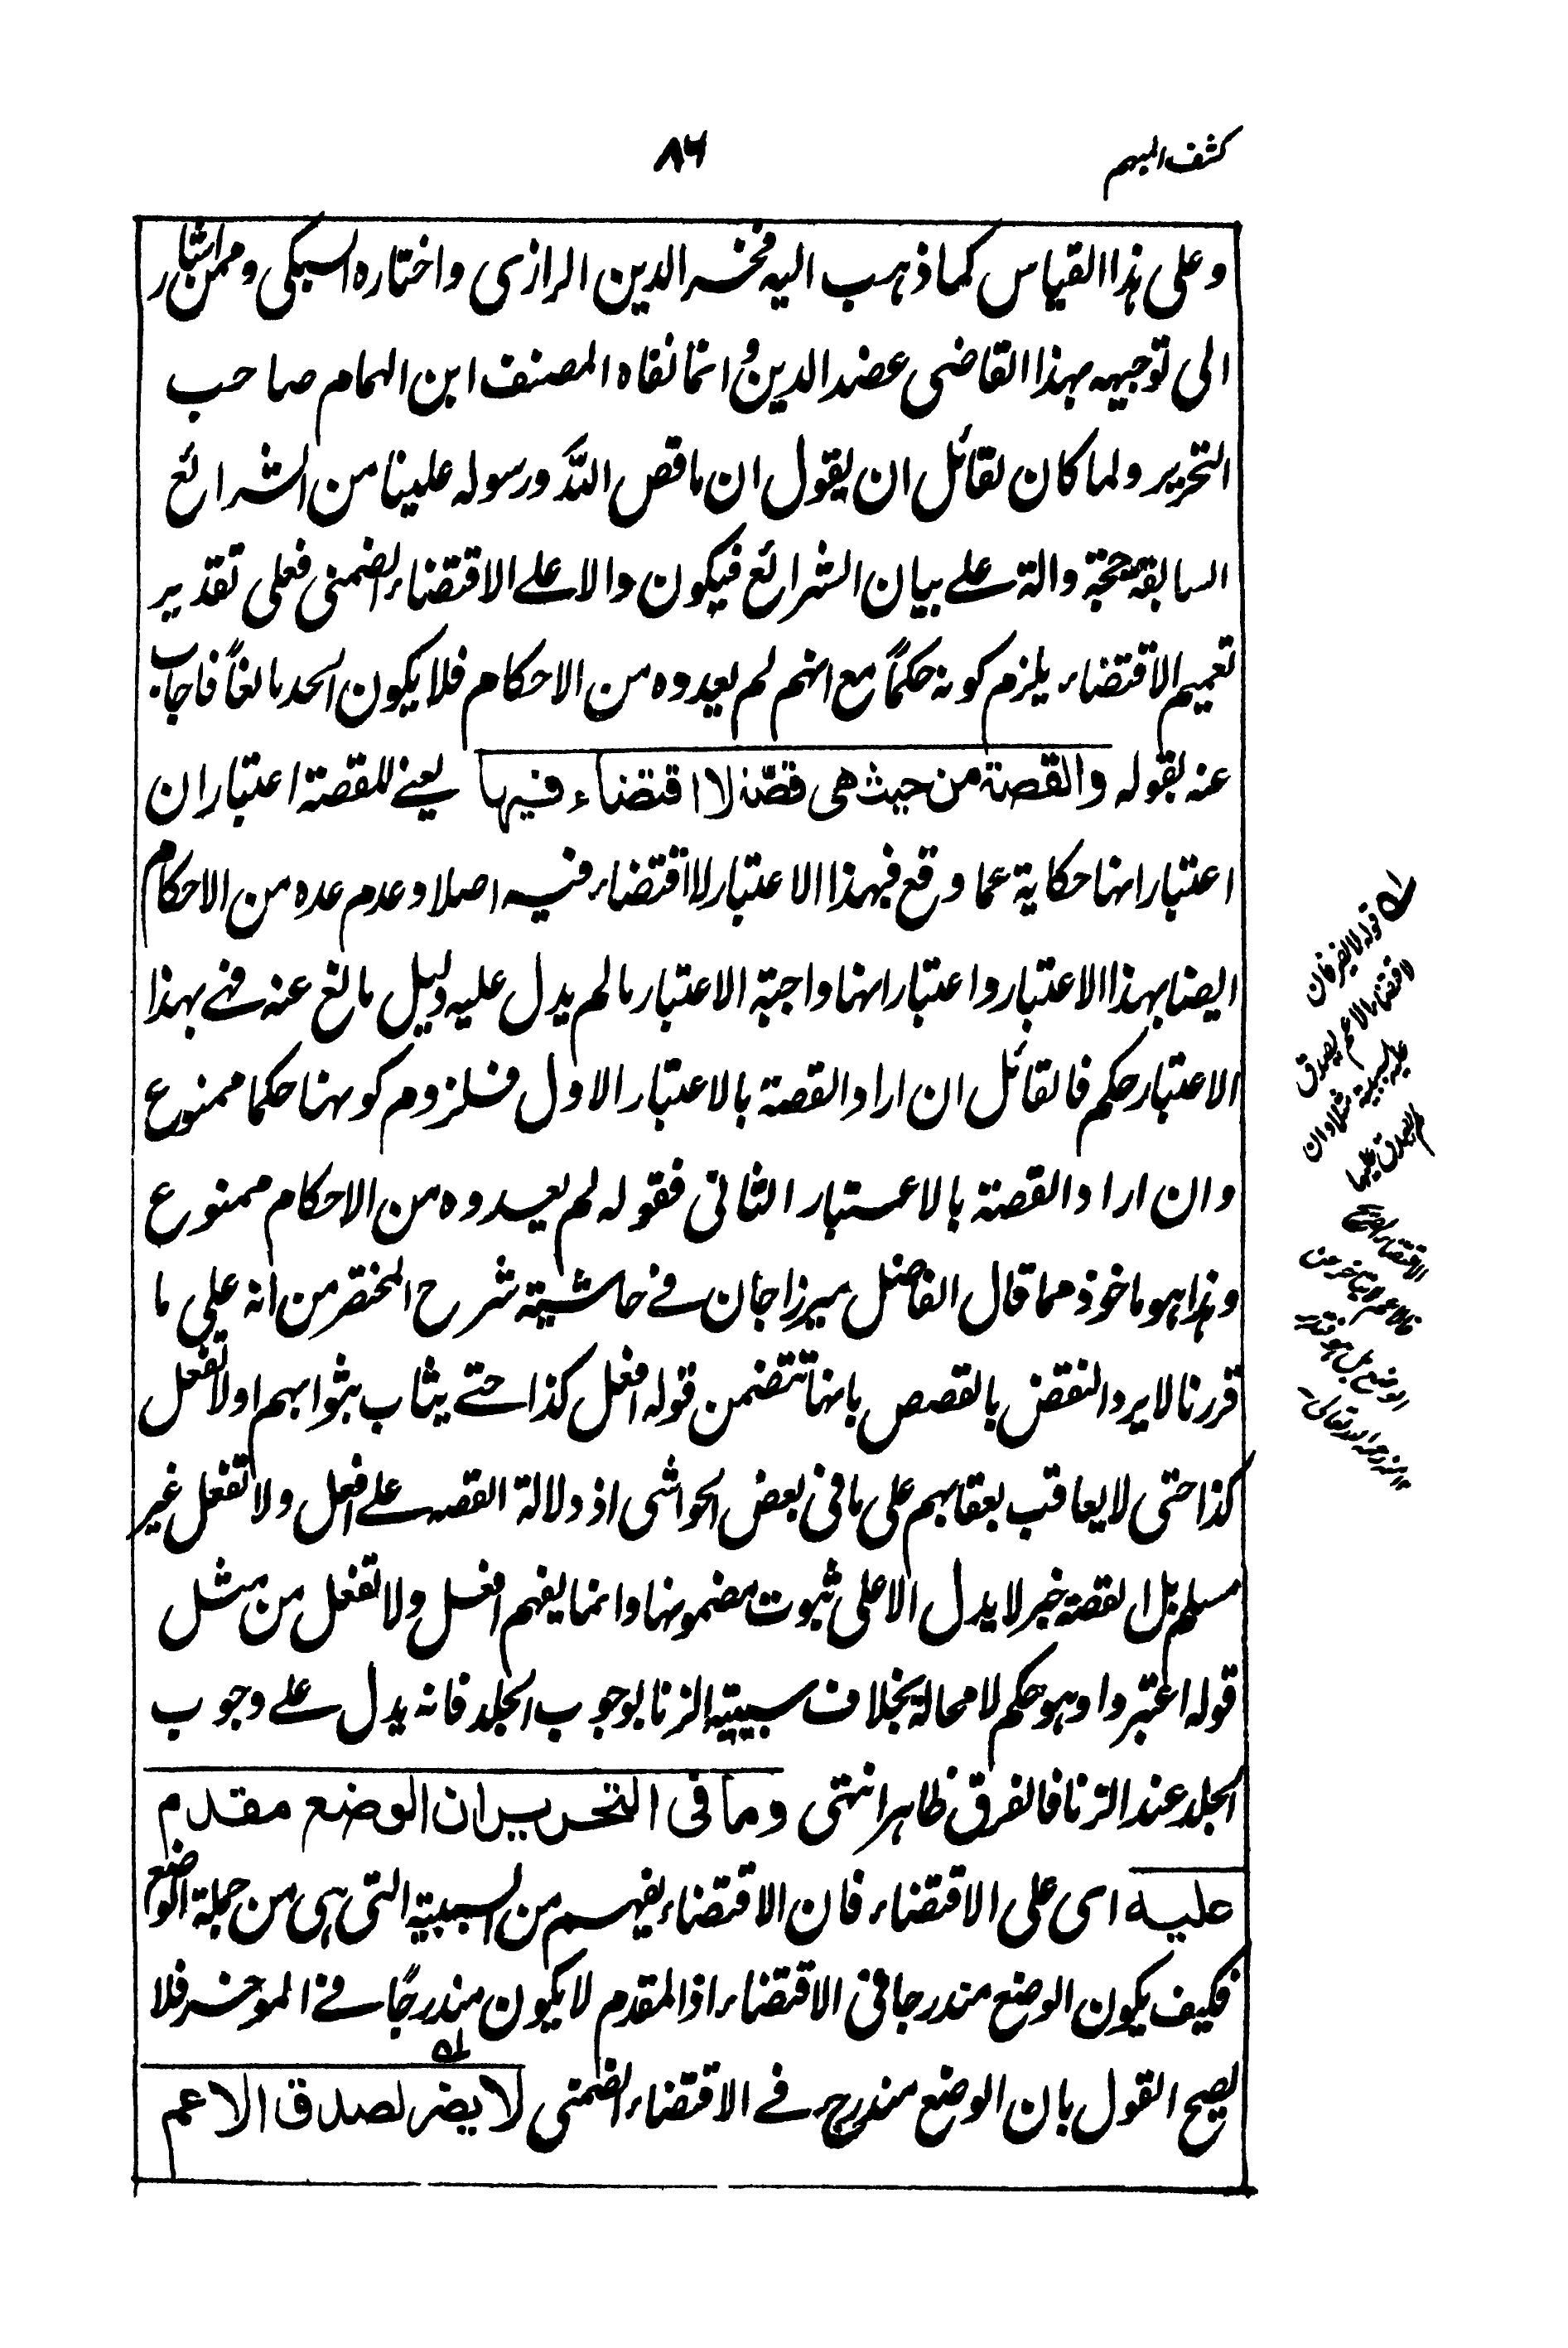 كشف المبهم
۸۶
وعلى هذا القياس كما ذهب اليه فخر الدين الرازى واختاره السبكى وممن اشار
الى توجيهه بهذا القاضى عضد الدين وانما نفاه المصنف ابن الهمام صاحب
التحرير ولما كان لقائل ان يقول ان ما قص الله ورسوله علينا من الشرائع
السابقة حجة دالة على بيان الشرائع فيكون دالا على الاقتضاء الضمنى فعلى تقدير
تعميم الاقتضاء يلزم كونه حكمًا مع انهم لم يعدوه من الاحكام فلا يكون الحد مانعاً فاجاب
عنه بقوله والقصة من حيث هى قصّة لا اقتضاء فيها يعنى للقصة اعتباران
اعتبار انها حكاية عما وقع فبهذا الاعتبار لا اقتضاء فيه اصلا وعدم عده من الاحكام
ايضا بهذا الاعتبار واعتبار انها واجبة الاعتبار ما لم يدل عليه دليل مانع عنه فهى بهذا
الاعتبار حكم فالقائل ان اراد القصة بالاعتبار الاول فلزوم كونها حكما ممنوع
وان اراد القصة بالاعتبار الثانى فقوله لم يعدوه من الاحكام ممنوع
وهذا هو ماخوذ مما قال الفاضل ميرزا جان فى حاشية شرح المختصر من انه على ما
قررنا لا يرد النقض بالقصص بانها تتضمن قوله افعل كذا حتى يثاب بثوابهم او لا تفعل
كذا حتى لا يعاقب بعقابهم على ما فى بعض الحواشى اذ دلالة القصه على افعل ولا تفعل غير
مسلم بل القصة خبر لا يدل الا على ثبوت مضمونها وانما يفهم افعل ولا تفعل من مثل
قوله اعتبروا وهو حكم لا محالة بخلاف سببية الزنا لوجوب الجلد فانه يدل على وجوب
الجلد عند الزنا فالفرق ظاهر انتهى وما فى التحرير ان الوضع مقدم
عليه اى على الاقتضاء فان الاقتضاء يفهم من السببية التى هى من جملة الوضع
فكيف يكون الوضع مندرجا فى الاقتضاء اذ المقدم لا يكون مندرجًا فى الموخر فلا
يصح القول بان الوضع مندرج فى الاقتضاء الضمنى لا يضر لصدق الاعم
قوله لا يضر فان
اقتضاء الاعم يصدق
على السببية مثلا وان
لم يصدق عليها
الاقتضاء